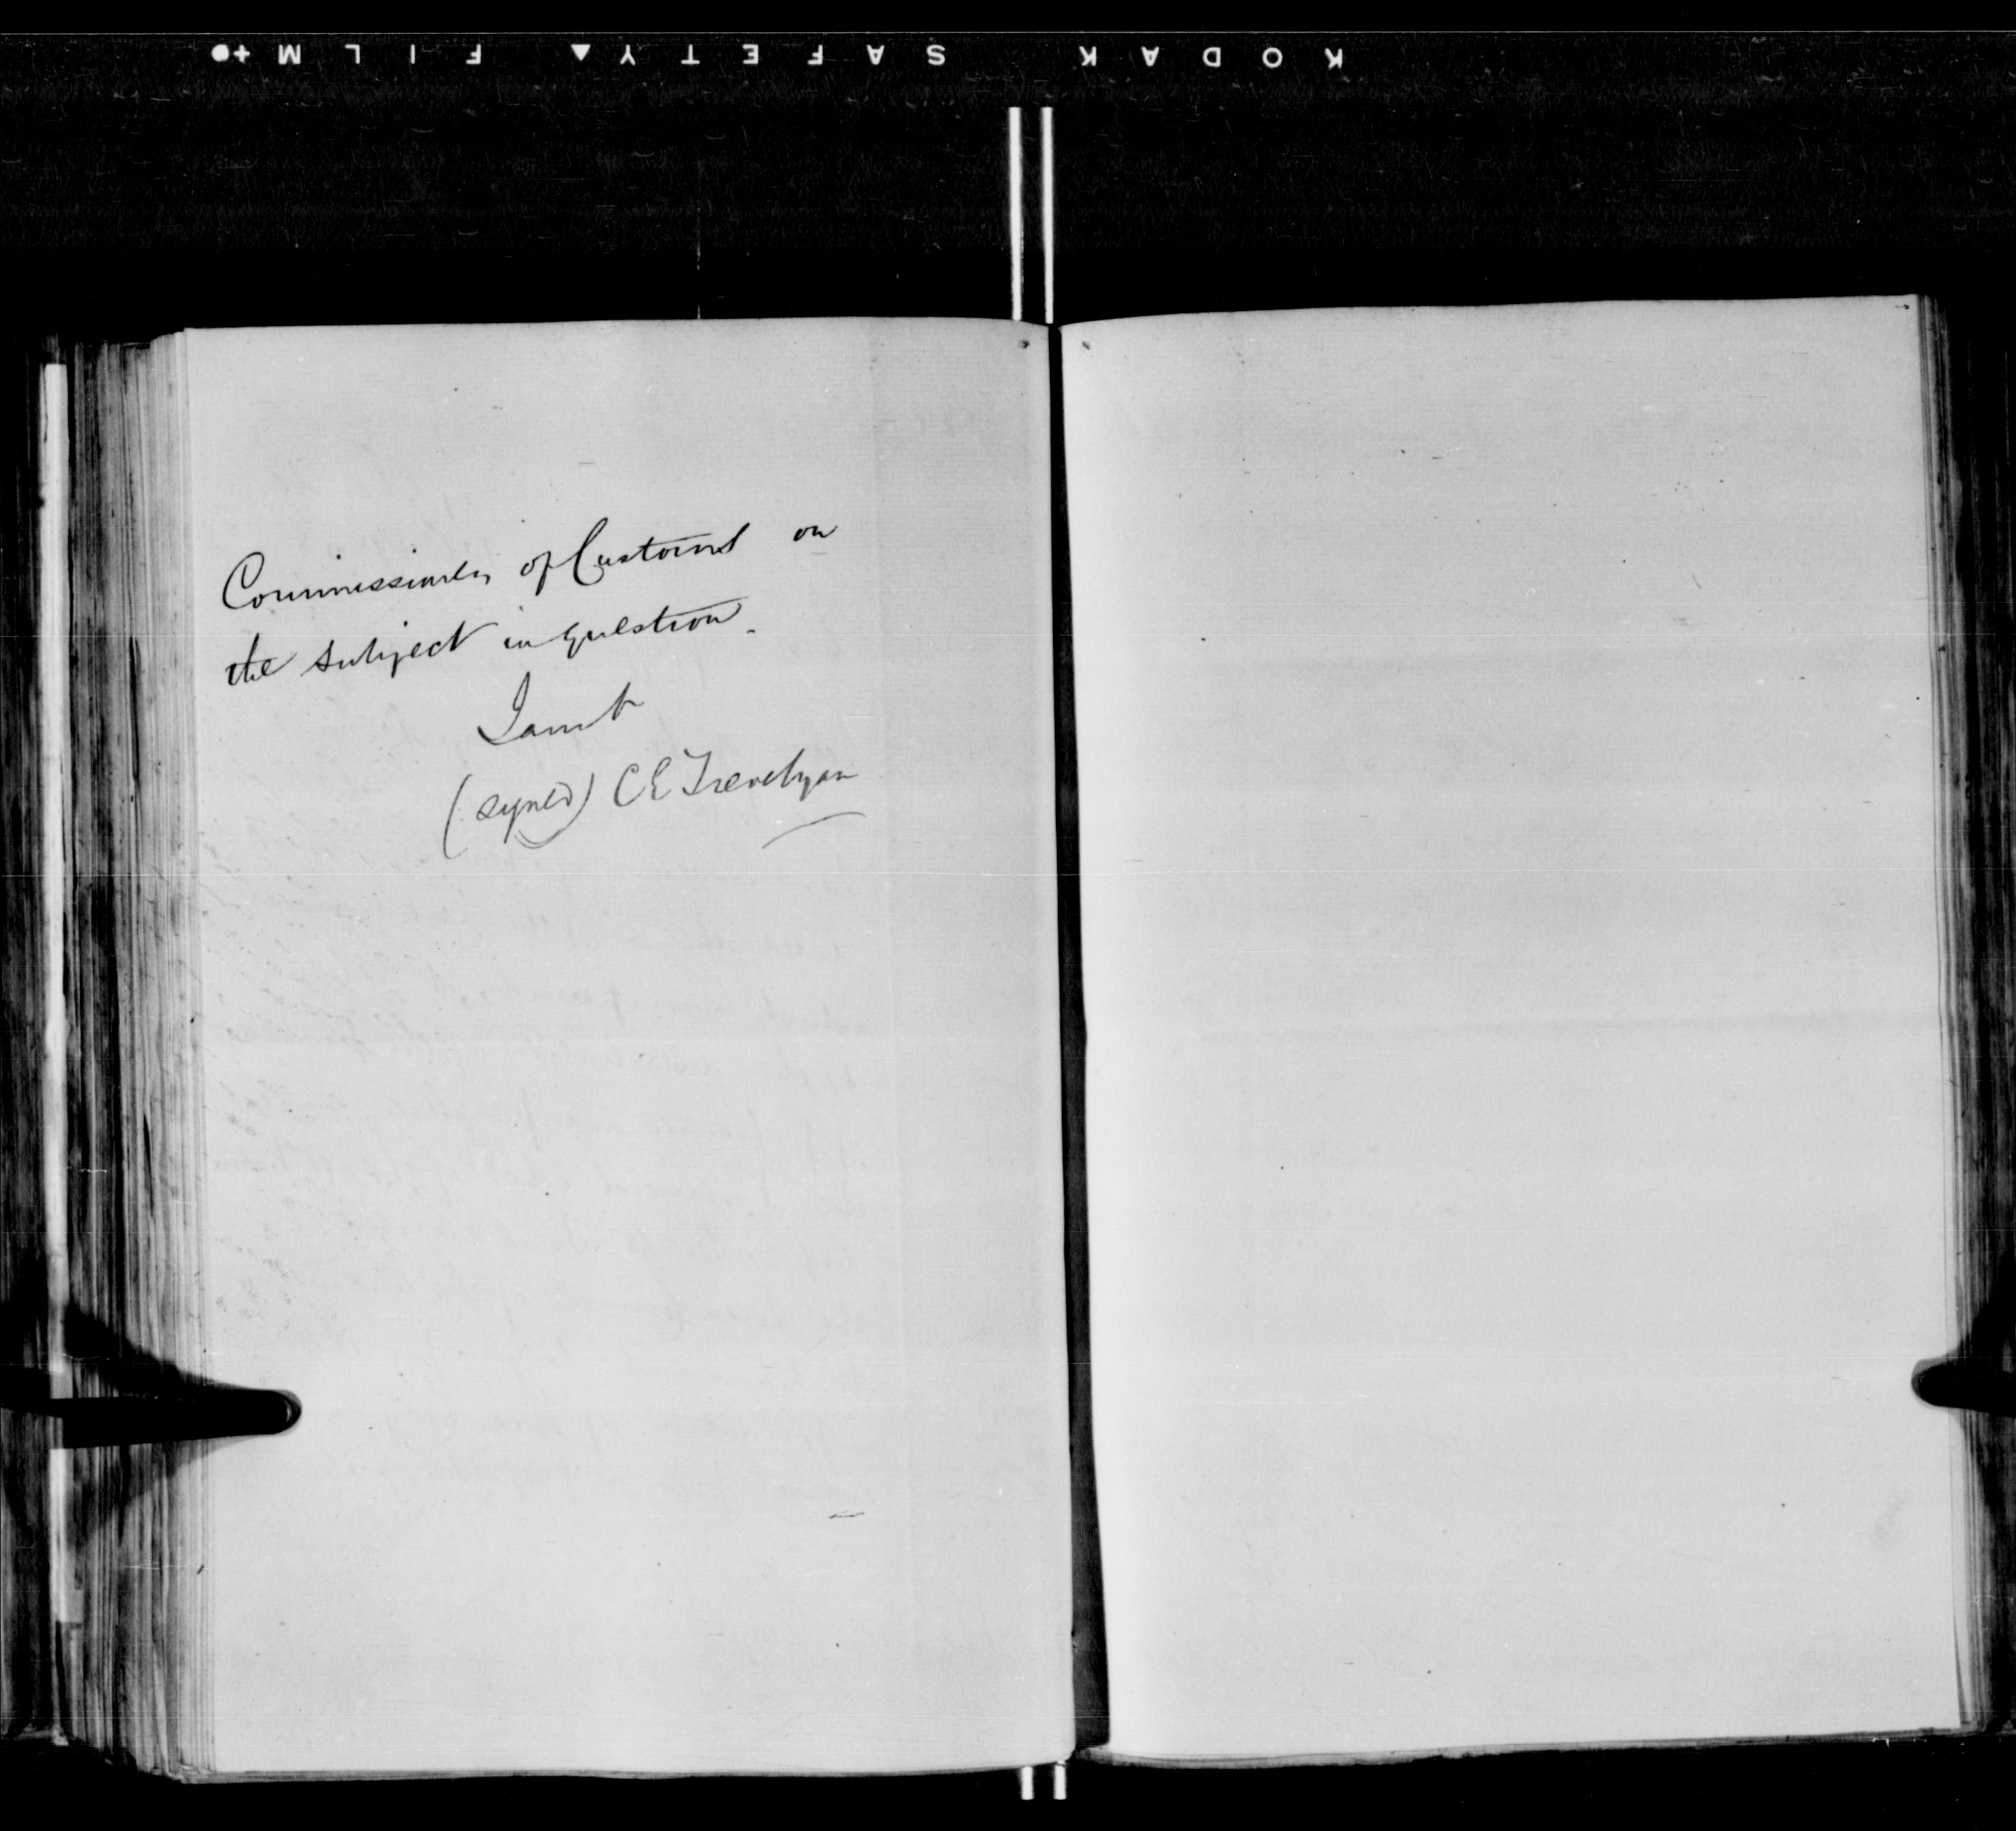 KODAK SAFETY▲ FILM
Commissioners of Customs on
the subject in question.
I am &c
(signed) C E Trevelyan